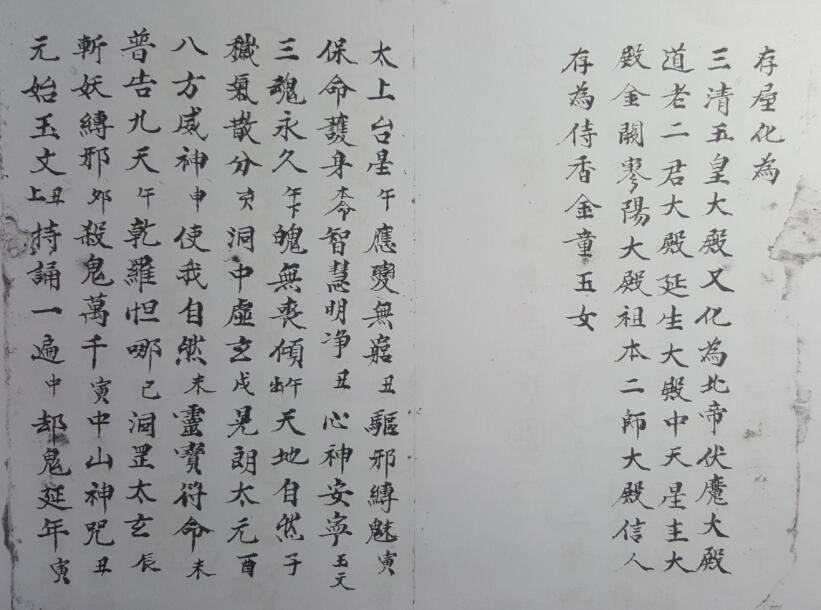 存屋化為
三清五皇大殿又化為北帝伏魔大殿
道老二君大殿延生大殿中天星主大
殿金闕寥陽大殿祖本二師大殿信人
存為侍香金童五女
太上台星午應變無窮丑驅邪縛魅寅
保命護身本命智慧明净丑心神安寧玉文
三魂永久午下魄無喪傾午天地自然子
穢氣散分亥洞中虛玄戌晃朗太元酉
八方威神申使我自然未靈寳符命未
普告九天午乾羅怛哪己洞罡太玄辰
斬妖縛邪卯殺鬼萬千寅中山神咒丑
元始玉文丑上持誦一遍中却鬼延年寅